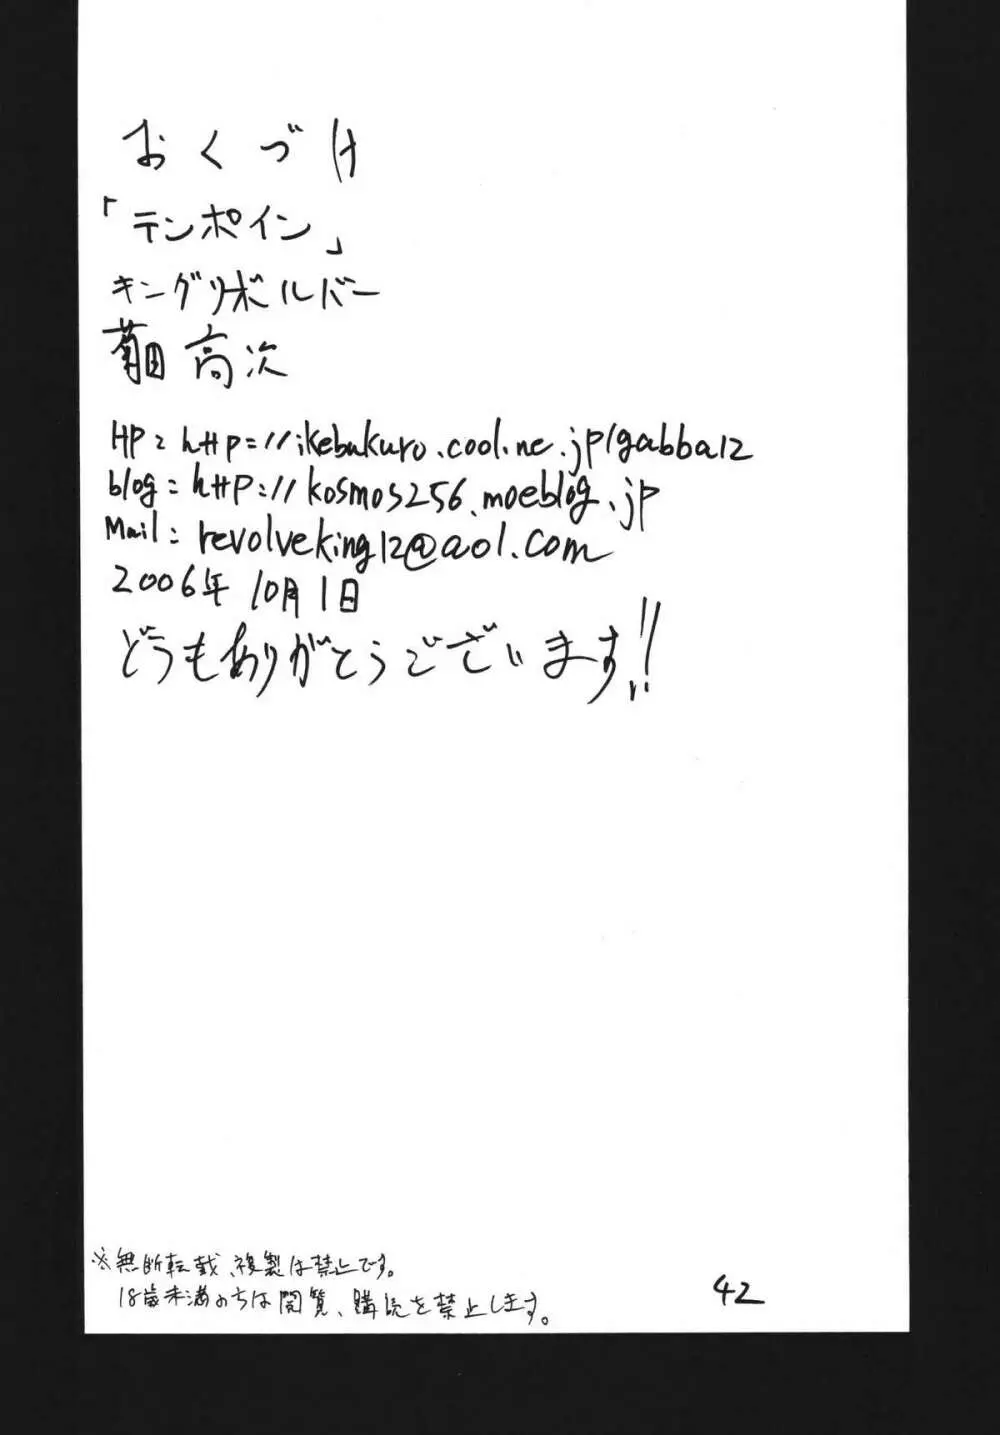 おくづけ
「テンポイン」
キングリボルバー
菊田 高次
HP: http://ikebukuro.cool.ne.jp/gabba12
blog: http://kosmos256.moeblog.jp
Mail: revolveking12@aol.com
2006年 10月1日
どうもありがとうございます!!
※無断転載、複製は禁止です。
18歳未満のちは閲覧、購読を禁止します。
42